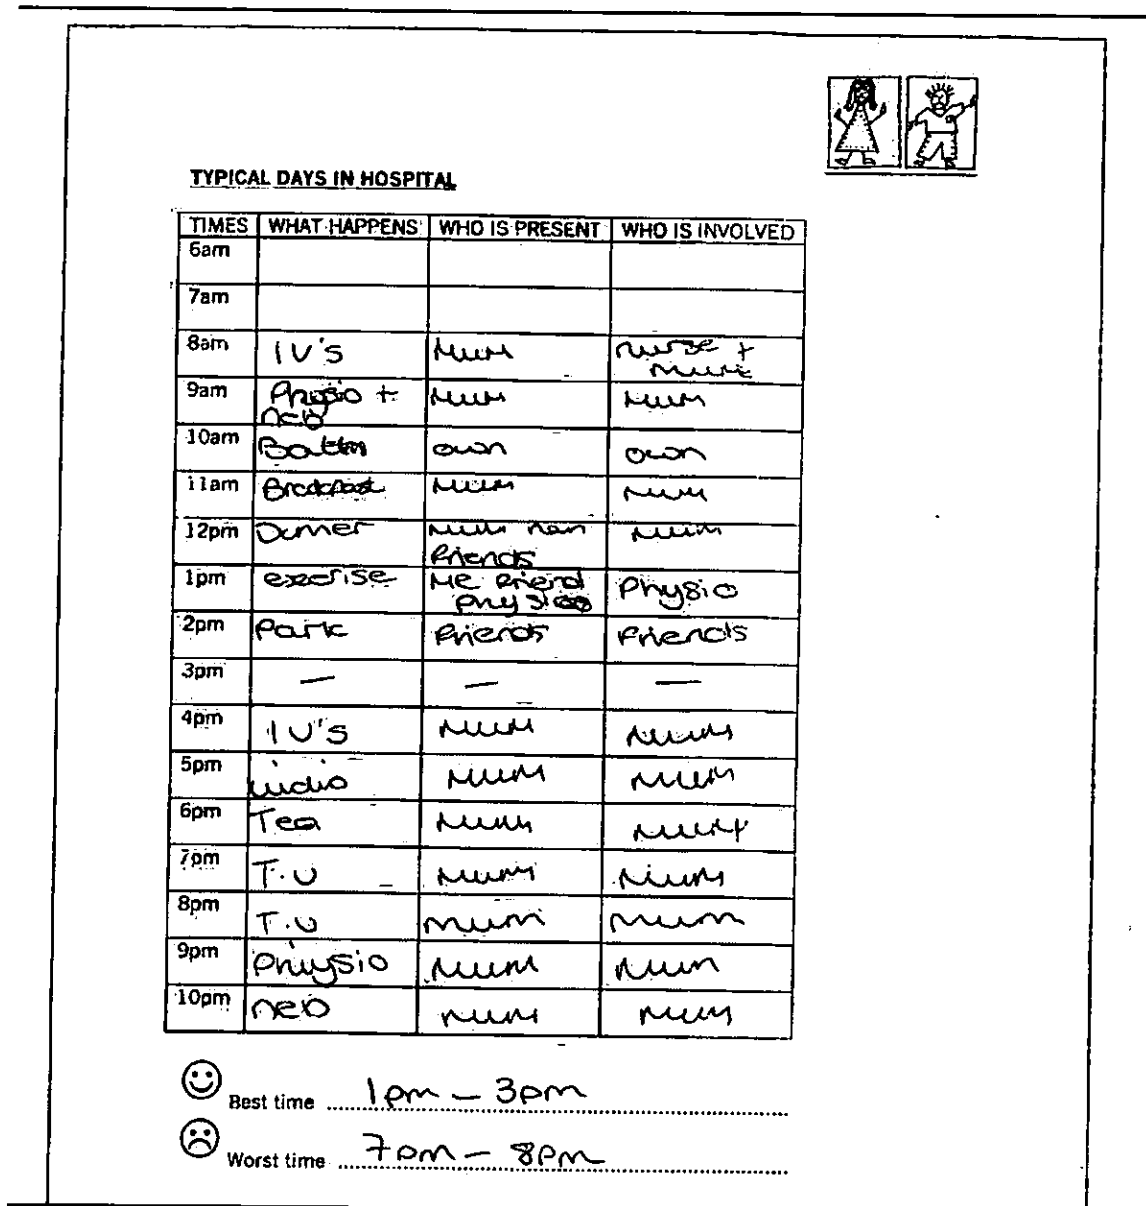 TYPICAL DAYS IN HOSPITAL
TIMES WHAT HAPPENS WHO IS PRESENT WHO IS INVOLVED
6am
7am
8am IV's Mum nurse + mum
9am Physio + neb Mum Mum
10am Bath own own
11am Breakfast Mum Mum
12pm Dinner Mum nan friends Mum
1pm exercise Me friend physio Physio
2pm Park Friends Friends
3pm — — —
4pm IV's Mum Mum
5pm Mum Mum
6pm Tea Mum Mum
7pm T.V Mum Mum
8pm T.V mum mum
9pm Physio Mum Mum
10pm neb Mum Mum
Best time 1pm – 3pm
Worst time 7pm – 8pm